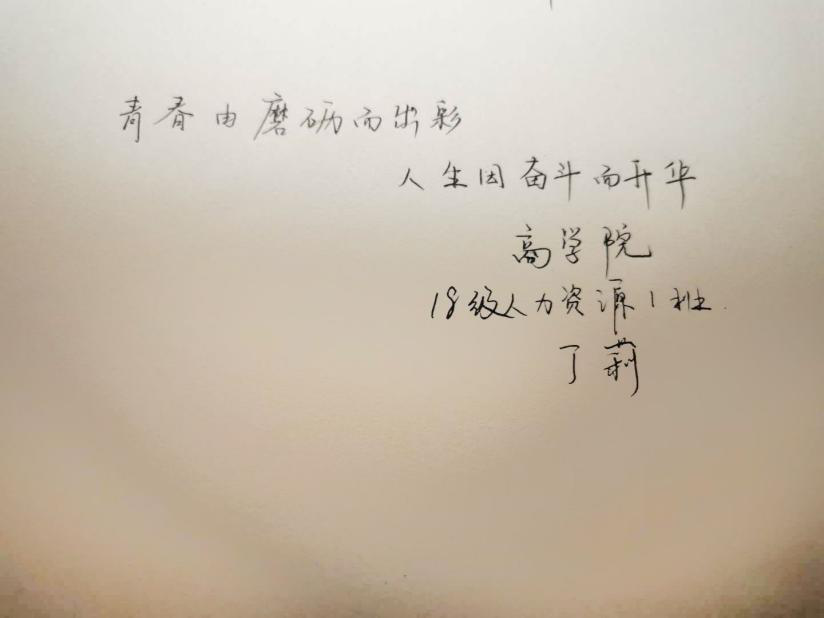 青春由磨砺而出彩
人生因奋斗而升华
商学院
18级人力资源1班
丁莉